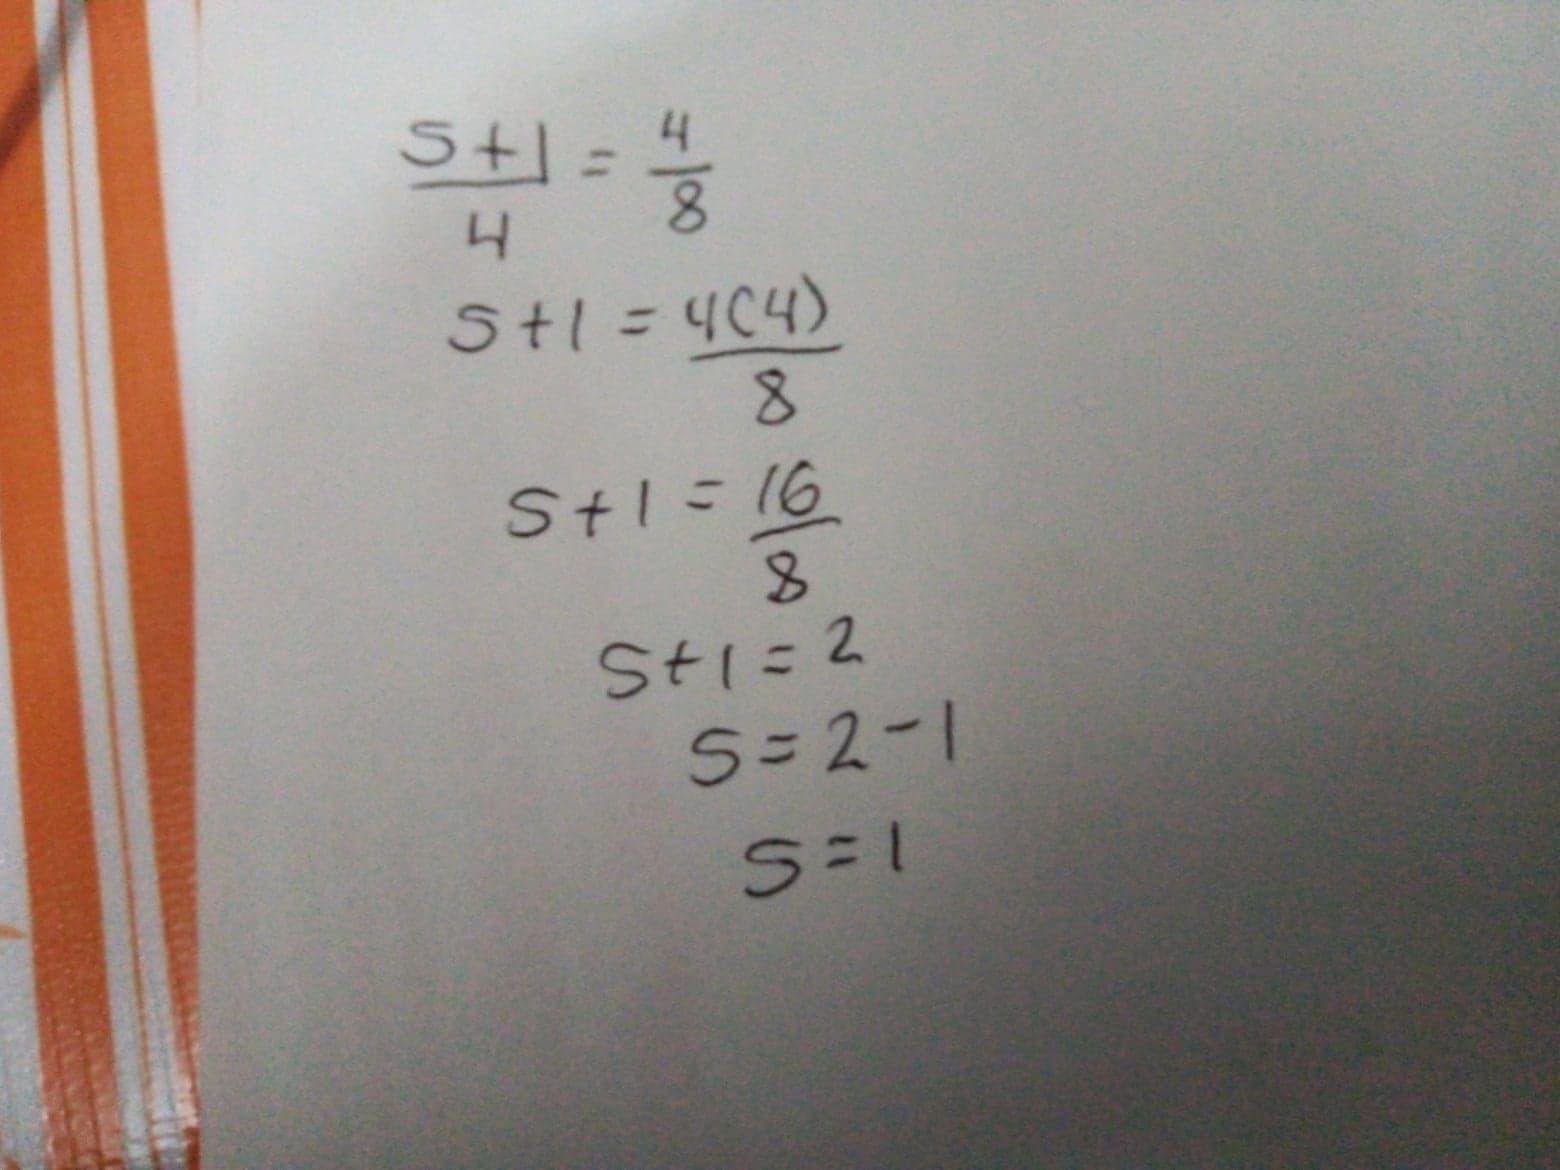 S+1/4 = 4/8
S+1 = 4(4)/8
S+1 = 16/8
S+1 = 2
S = 2-1
S = 1